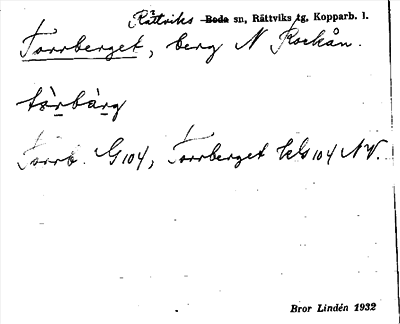 Rättviks Boda sn, Rättviks tg, Kopparb. l.
Torrberget, berg N Rockån.
tòrbàrg
Torrb. G104, Torrberget bl. 104 NV.
Bror Lindén 1932